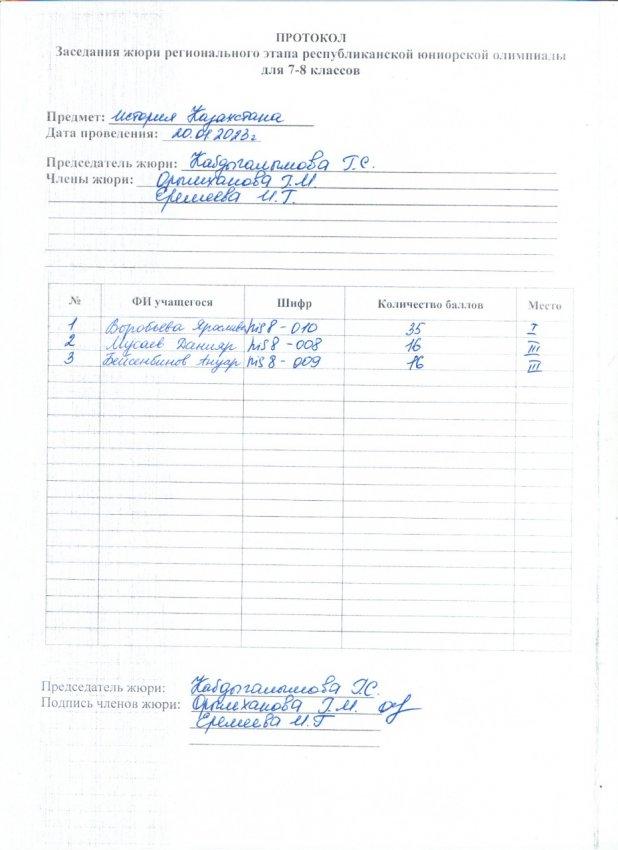 ПРОТОКОЛ
Заседания жюри регионального этапа республиканской юниорской олимпиады
для 7-8 классов
Предмет: История Казахстана
Дата проведения: 20.01.2023г
Председатель жюри: Кабдыгалымова Г.С.
Члены жюри: Орымханова Г.М.
Еремеева И.Г.
№ ФИ учащегося Шифр Количество баллов Место
1 Воробьева 8-010 35 I
2 Мусаев Данияр 8-008 16 III
3 Бейсенбинов Ануар 8-009 16 III
Председатель жюри: Кабдыгалымова Г.С.
Подпись членов жюри: Орымханова Г.М.
Еремеева И.Г